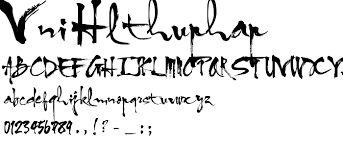 VniHlthuphap
ABCDEFGHIJKLMNOPQRSTUVWXYZ
abcdefghijklmnopqrstuvwxyz
0123456789.,!?-_:;